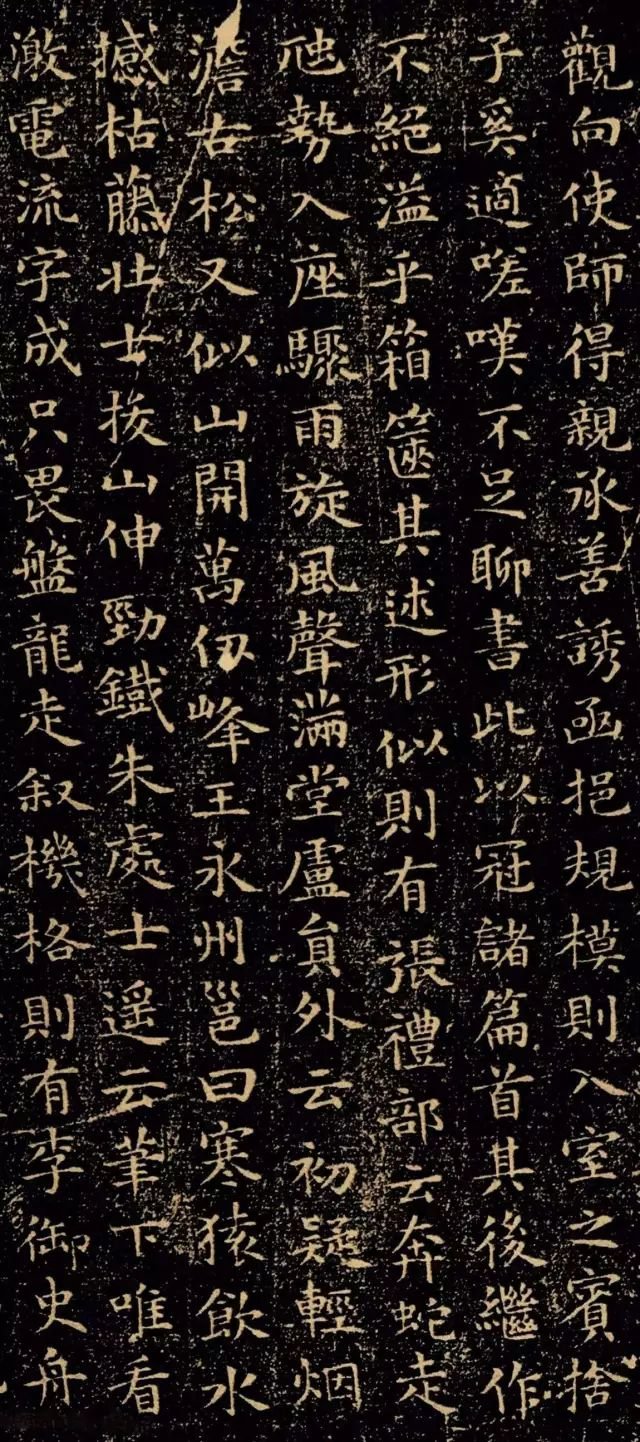 觀向使師得親承善誘亟挹規模則入室之賓捨
子奚適嗟嘆不足聊書此以冠諸篇首其後繼作
不絕溢乎箱篋其述形似則有張禮部云奔蛇走
虺勢入座驟雨旋風聲滿堂盧員外云初疑輕烟
澹古松又似山開萬仞峰王永州邕曰寒猿飲水
撼枯藤壯士拔山伸勁鐵朱處士遥云筆下唯看
激電流字成只畏盤龍走叙機格則有李御史舟